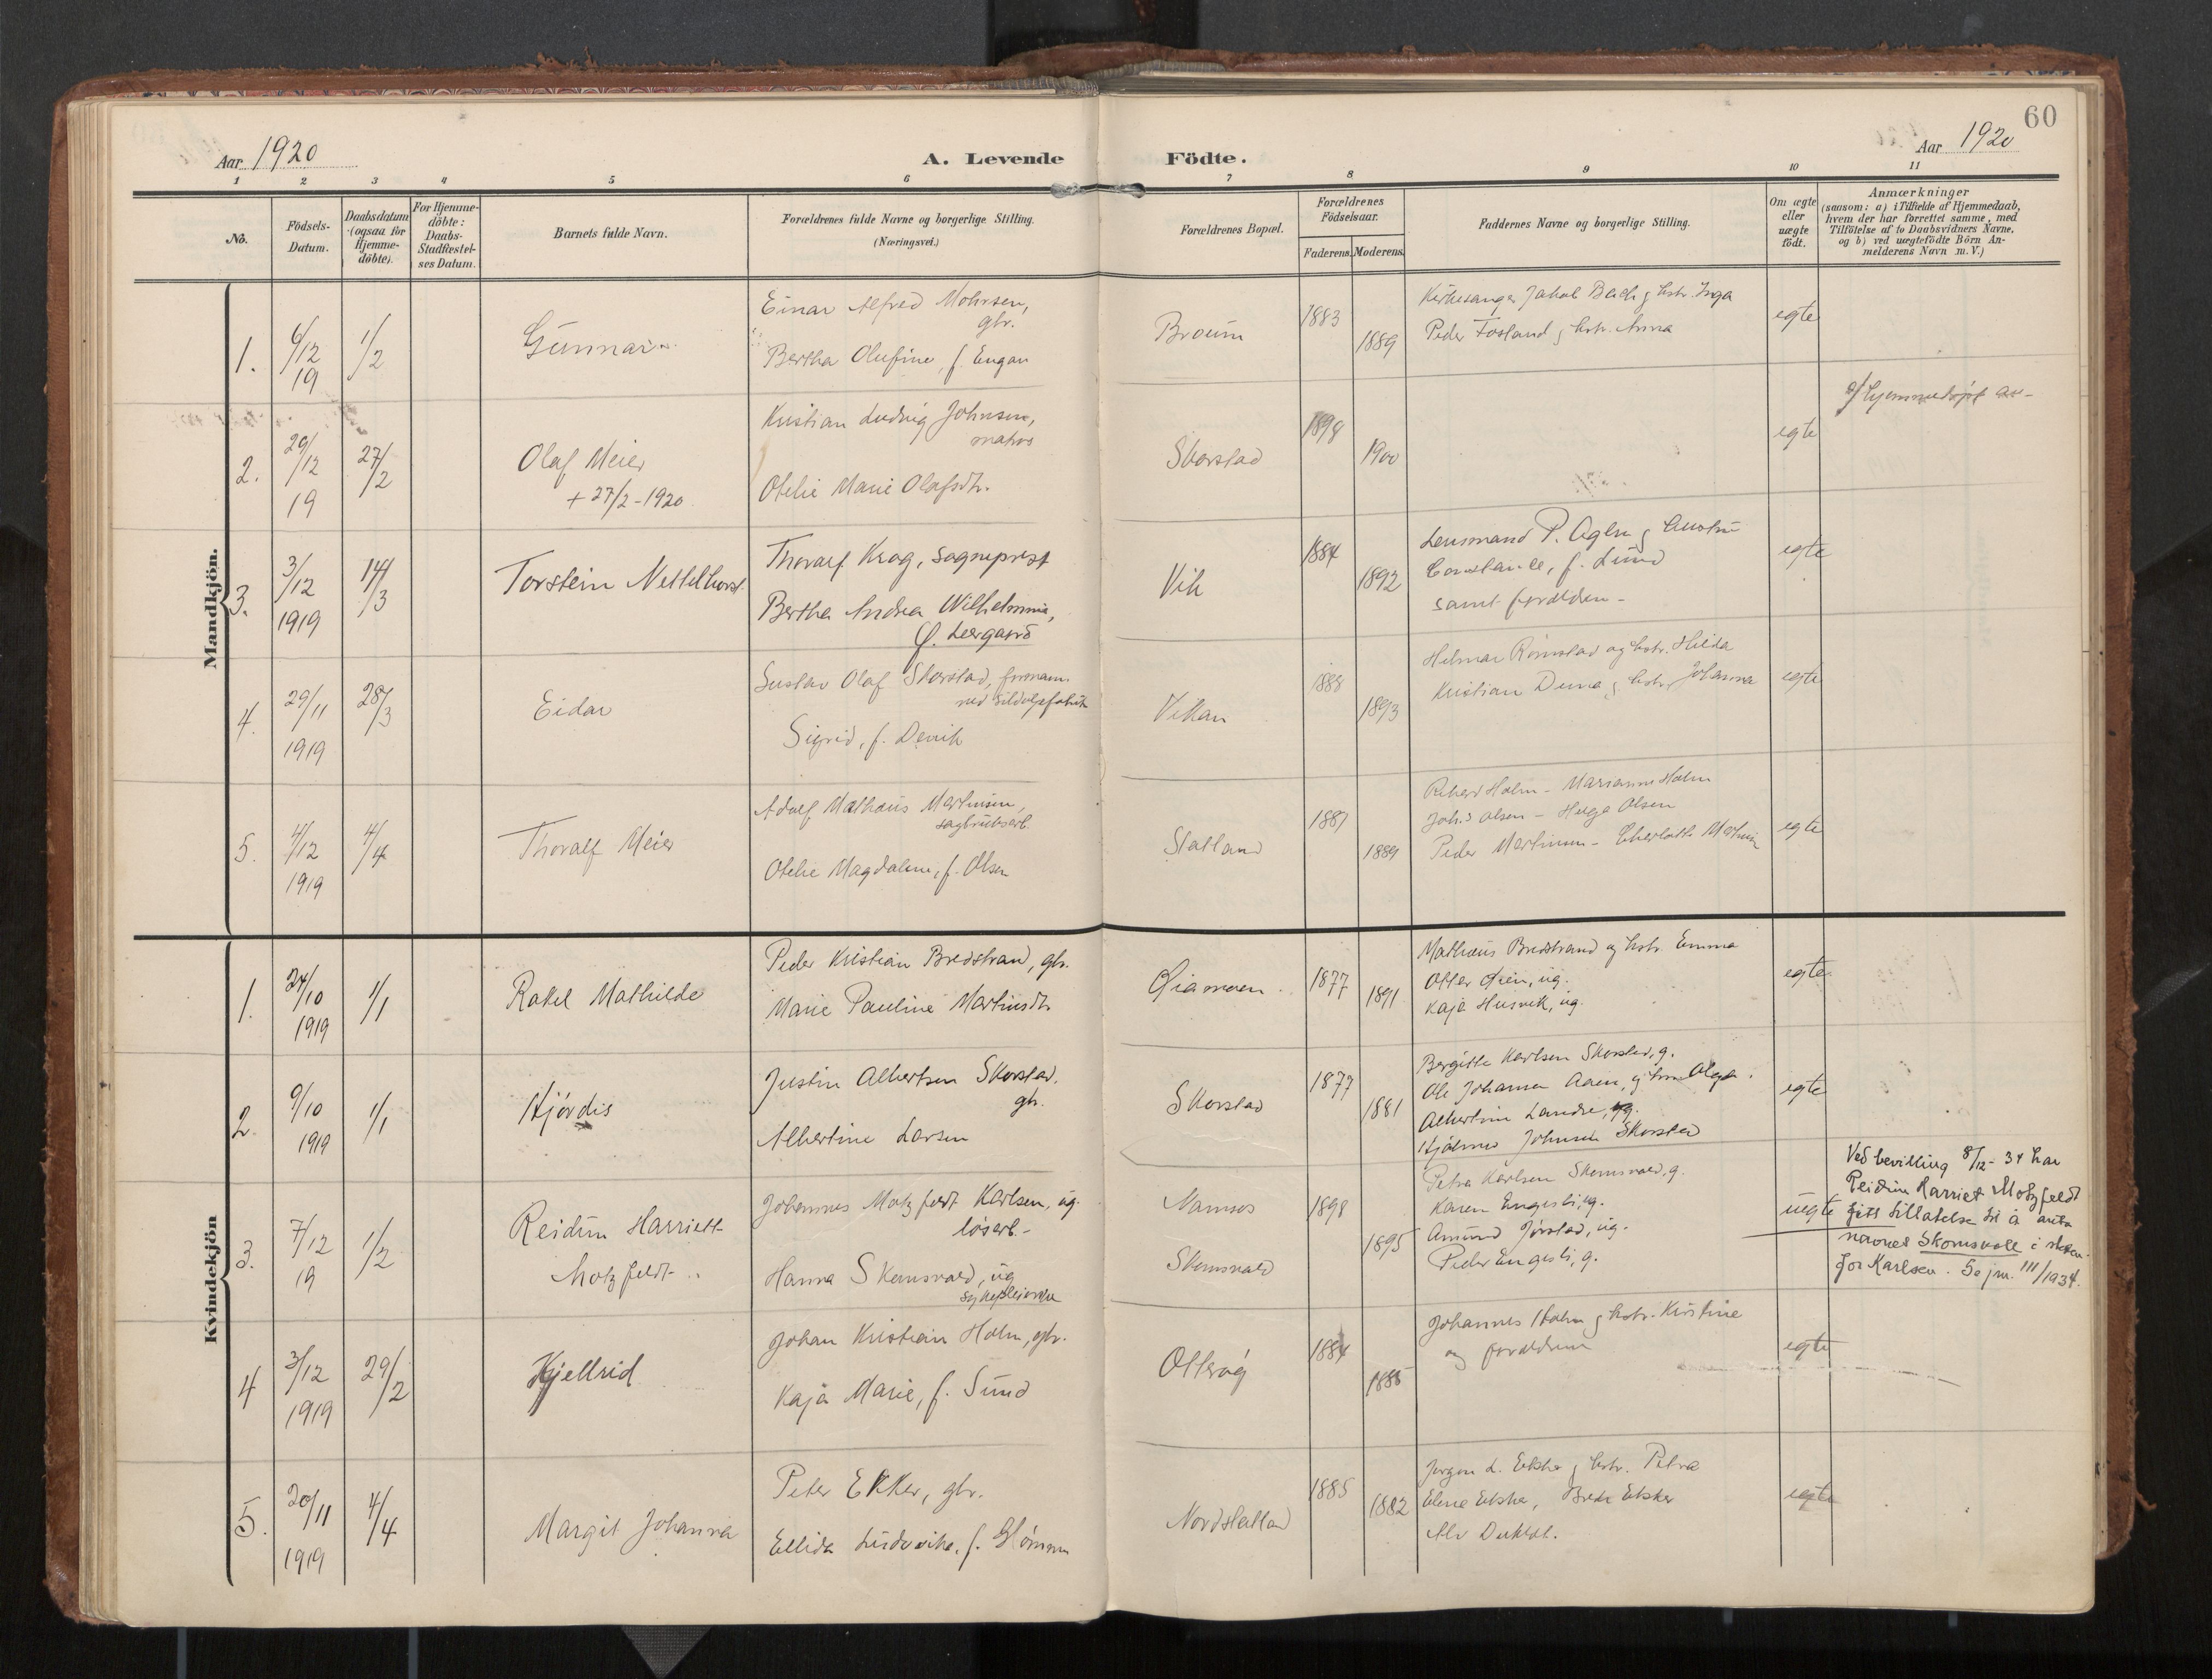 60
Aar 1920
A. Levende Födte.
Aar 1920
1 2 3 4 5 6 7 8 9 10 11
No.
Födsels-
Datum.
Daabsdatum
(ogsaa for
Hjemme-
döbte).
For Hjemme-
döbte:
Daabs-
Stadfæstel-
ses Datum.
Barnets fulde Navn.
Forældrenes fulde Navne og borgerlige Stilling.
(Næringsvei.)
Forældrenes Bopæl.
Forældrenes
Födselsaar.
Faderens.
Moderens.
Faddernes Navne og borgerlige Stilling.
Om ægte
eller
uægte
födt.
Anmærkninger
(saasom: a) i Tilfælde af Hjemmedaab,
hvem der har forrettet samme, med
Tilföielse af to Daabsvidners Navne,
og b) ved uægtefödte Börn An-
melderens Navn m. V.)
Mandkjön.
1.
6/12
19
1/2
Gunnar
Einar Alfred Mohrsen,
gbr.
Bertha Olufine, f. Engan
Broum
1883
1889
Kirkesanger Jakob Bach g hstr. Inga
Peder Fosland g hstr. Anna
egte
2.
29/12
19
27/2
Olaf Meier
+ 27/2 - 1920
Kristian Ludvig Johnsen,
matros
Otelie Marie Olafsdtr.
Skorstad
1898
1900
egte
a/ hjemmedøpt av -
3.
3/12
1919
14/3
Torstein Nettelhorst
Thoralf Krog, sogneprest
Bertha Andrea Wilhelmine,
f. Leergaard
Vik
1884
1892
Lensmand P. Aglen g hustru
Constance, f. Lund
samt forældren -
egte
4.
29/11
1919
28/3
Eidar
Gustav Olaf Skorstad, formann
ved Sildoljefabrik
Sigrid, f. Devik
Vikan
1888
1893
Helmar Rømstad og hstr. Hilda
Kristian Duna g hstr. Johanna
egte
5.
4/12
1919
4/4
Thoralf Meier
Adolf Mathæus Martinsen,
sagbruksarb.
Otelie Magdalene, f. Olsen
Statland
1887
1889
Rikard Holm - Marianne Holm
Johs Olsen - Helga Olsen
Peder Martinsen - Charlotte Martinsen
egte
Kvindekjön
1.
24/10
1919
1/1
Rakel Mathilde
Peder Kristian Bredstrand, gbr.
Marie Pauline Martinsdtr.
Øiamoen
1877
1891
Mathæus Bredstrand og hstr. Emma
Otter Øien, ug.
Kaja Husvik, ug.
egte
2.
9/10
1919
1/1
Hjørdis
Justin Albertsen Skorstad,
gbr.
Albertine Larsen
Skorstad
1877
1881
Bergitte Karlsen Skorstad, g.
Ole Johansen Aaen, g hstr. Olga
Albertine Landre, g.
Hjalmar Johnsen Skorstad
egte
3.
7/12
19
1/2
Reidun Harriett
Motzfeldt
Johannes Motzfeldt Karlsen, ug.
løsarb.
Hanna Skomsvold, ug
sykepleierske
Namsos
Skomsvold
1898
1895
Petra Karlsen Skomsvold, g.
Karen Engesli, g.
Amund Jørstad, ug.
Peder Engesli, g.
uegte
Ved bevilling 8/12 - 34 har
Reidun Harriet Motzfeldt
fått tillatelse til å anta
navnet Skomsvoll i steden
for Karlsen. Se jnr. 111/1934.
4
3/12
1919
29/2
Kjellrid
Johan Kristian Holm, gbr.
Kaja Marie, f. Sund
Ottersøy
1884
1885
Johannes Holm g hstr. Kristine
og forældrene
egte
5.
20/11
1919
4/4
Margit Johanna
Peter Ekker, gbr.
Ellida Ludvika, f. Glømmen
Nordstatland
1885
1882
Jørgen L. Ekker g hstr. Petra
Elene Ekker, Brede Ekker
egte